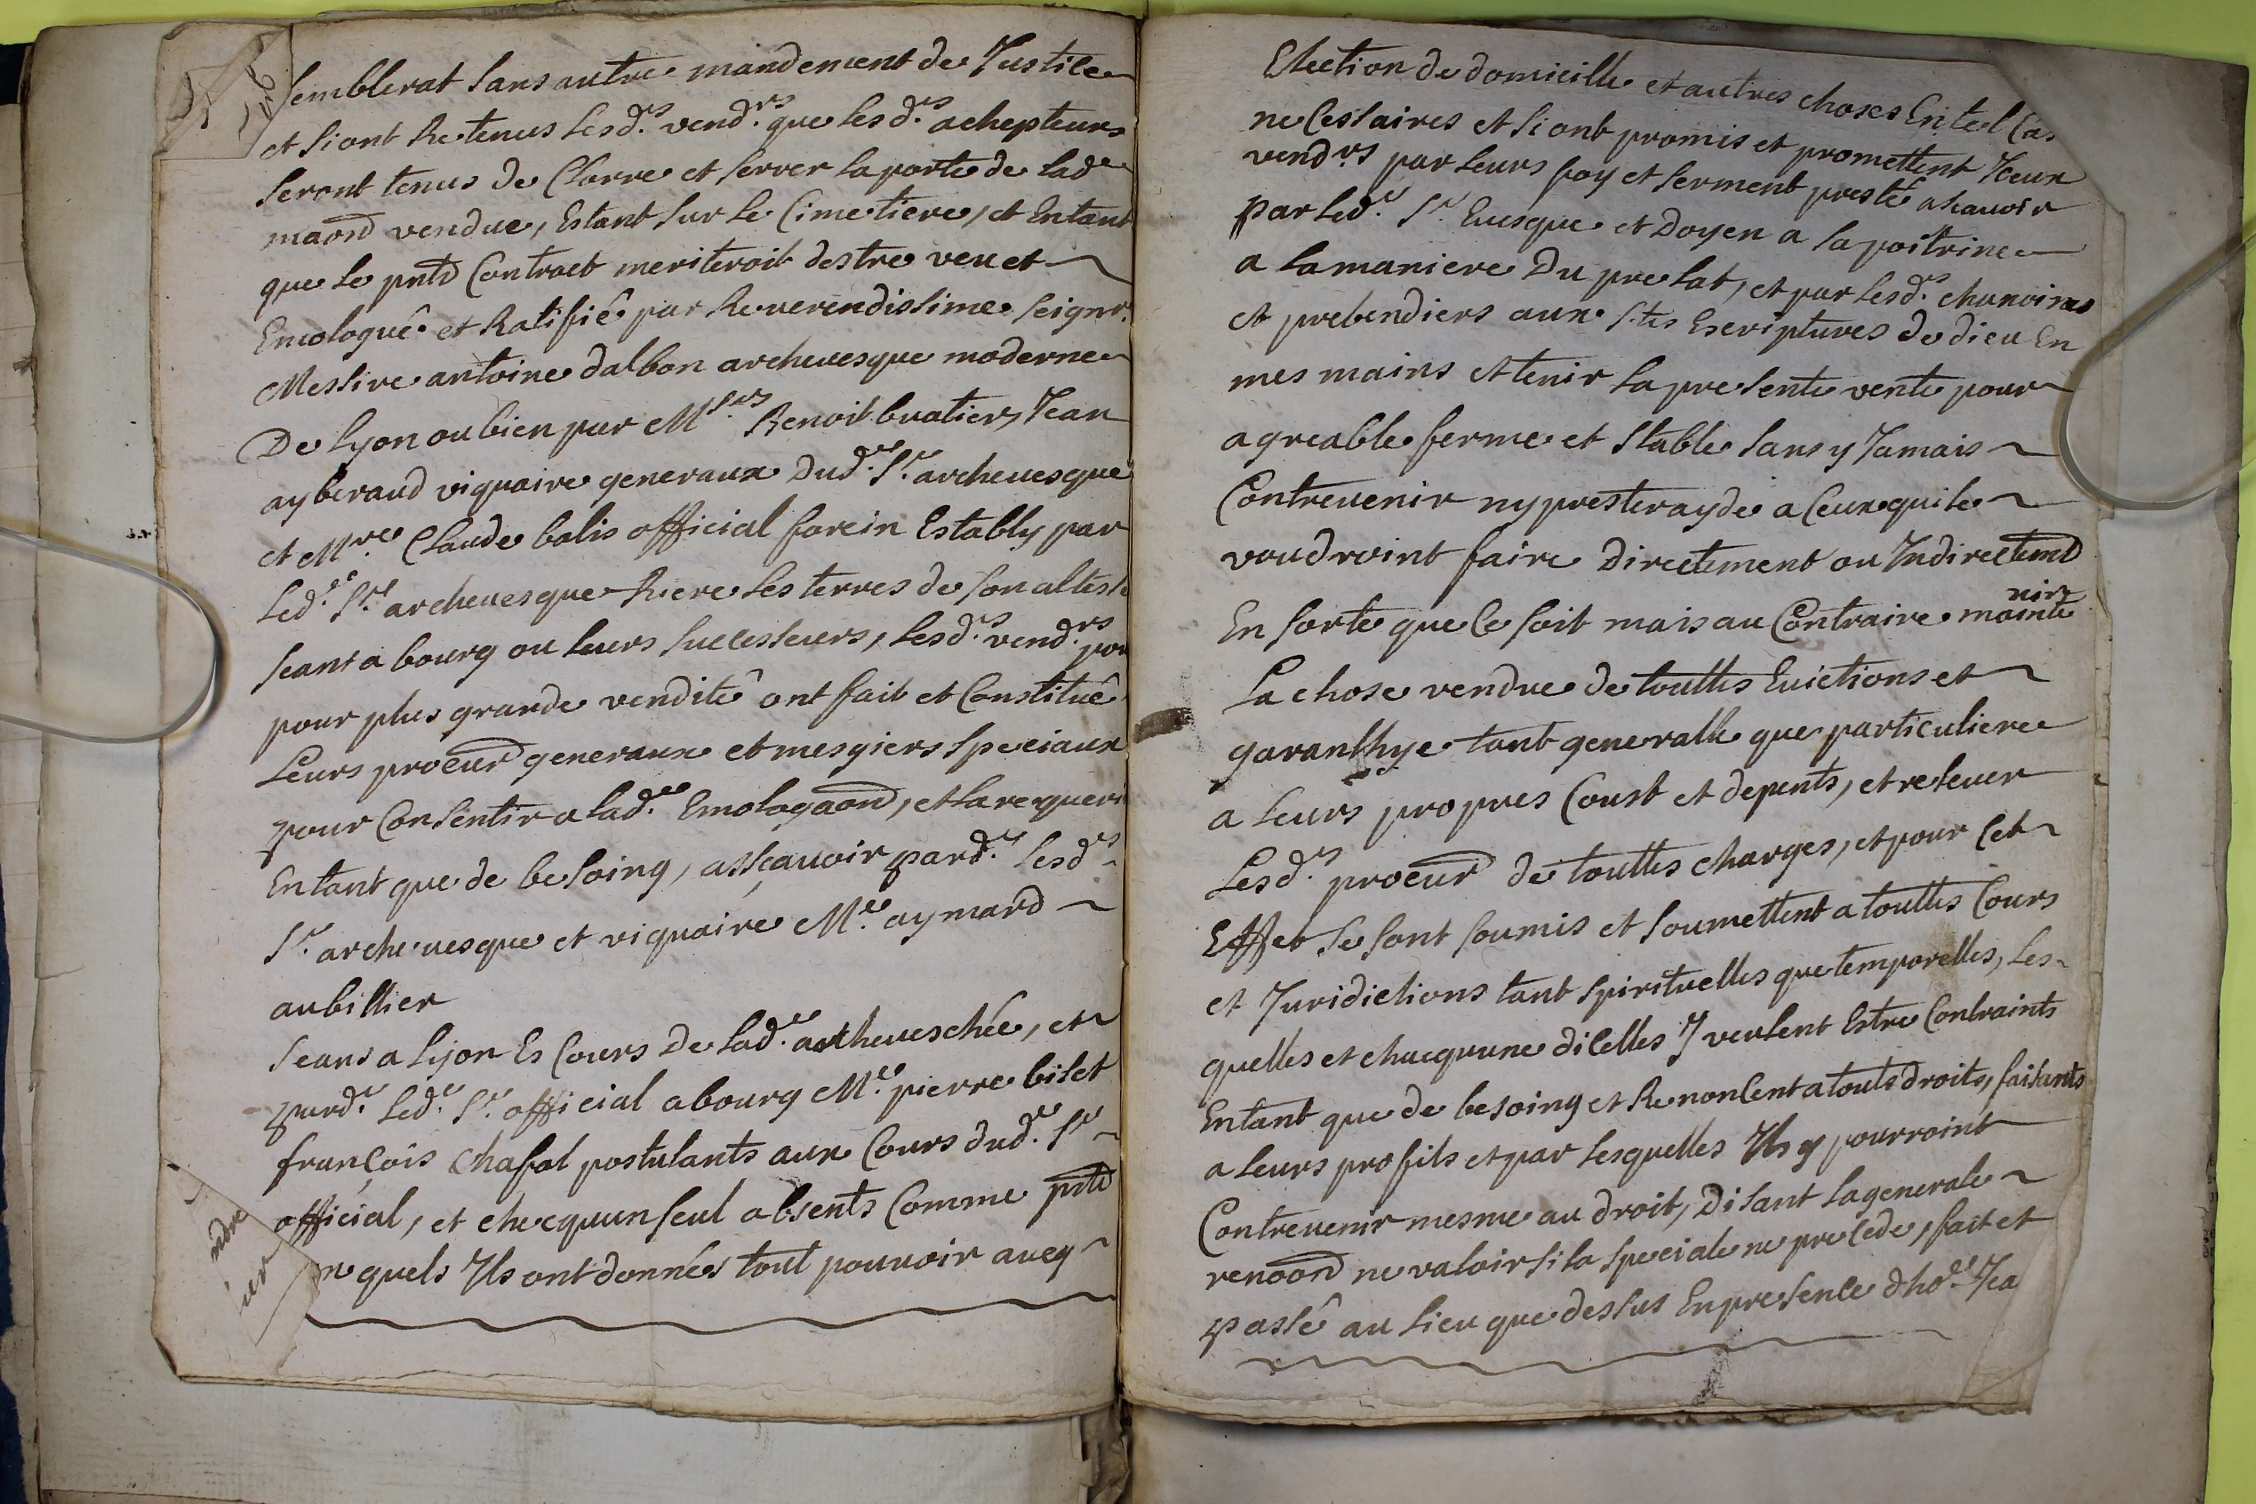 semblerat sans autre mandement de Justice
et si ont Retenus Lesd.rs vend.rs que lesd.rs achepteurs
seront tenus de Clorre et serrer la porte de lade
maond vendue, Estant sur le Cimetiere, et Entant
que le pntd Contract meriteroit destre veu et
Emologué et Ratifié par Reverendissime seignr.
Messire antoine dalbon archevesque moderne
De Lyon ou bien par M.rs Benoit buatier, Jean
ayberaud viquaire generaux Dud.e S.r archevesque
et M.re Claude balis official forein Estably par
Led.e S.r archevesque Riere les terres de son altesse
seant a bourg ou leurs successeurs, Lesd.rs vend.rs pour
pour plus grande vendité ont fait et Constitué
Leurs proeurd generaux et mesgiers speciaux
pour Consentir a lad.ee Emologaond, et la requeri
En tant que de besoing, assçavoir pard.t Lesd.rs
S.r archevesque et viquaire M.re aymard
aubillier
seans a Lyon Es Cours De Lad.ee archeveschée, et
pard.t Led.e S.r official a bourg M.re pierre biset
françois Chafal postulants aux Cours dud.e S.r
official, et checquun seul absents Comme pntd
quels Ils ont donnés tout pouvoir avecq
Election de domicille et autres choses En tel Cas
necessaires et si ont promis et promettent Iceux
vend.rs par leurs foy et serment presté ascavoir
par Led.e S.r Evesque et Doyen a la poitrine
a la maniere Du prelat, et par Lesd.rs chanoines
et prebendiers aux S.tes Escriptures de dieu En
mes mains et tenir la presente vente pour
agreable ferme et stable sans y Jamais
Contrevenir ny prester ayde a Ceux qui le
voudroint faire Directement ou Indirectemd
En sorte que Ce soit mais au Contraire mainte
nir
La chose vendue de touttes Evictions et
garanthye tant generalle que particuliere
a leurs propres Coust et depents, et relever
Lesd.rs proeurd de touttes charges, et pour Cet
Effet se sont soumis et soumettent a touttes Cours
et Juridictions tant spirituelles que temporelles, Les
quelles et chacquune dicelles Y veulent Estre Contraints
Entant que de besoing et Renoncent a touts droits, faisants
a leurs profits et par lesquelles Ils y pourroint
Contrevenir mesme au droit, Disant la generale
renoond ne valoir si la speciale ne precede, fait et
passé au lieu que dessus En presence dho.e Jea